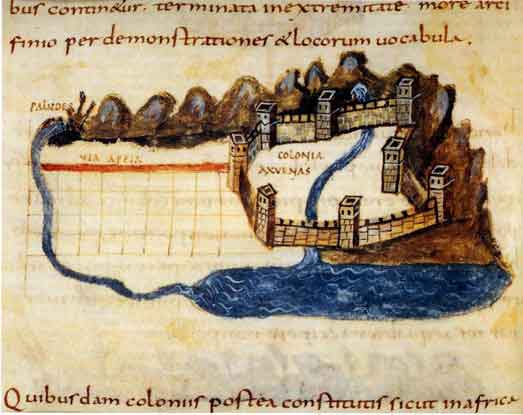 bus continetur. terminata inextremitate more arci
finio per demonstrationes & locorum uocabula.
PALUDES
VIA APPIA
COLONIA
AXVRNAS
Quibusdam coloniis postea constitutis sicut inafrica